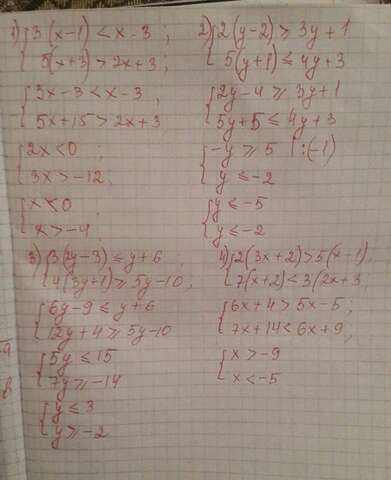 1) { 3(x-1) < x-3 ;
5(x+3) > 2x+3 ;
{ 3x-3 < x-3 ,
5x+15 > 2x+3
{ 2x < 0 ;
3x > -12 ,
{ x < 0
x > -4 ;
2) { 2(y-2) ≥ 3y+1
5(y+1) ≤ 4y+3
{ 2y-4 ≥ 3y+1
5y+5 ≤ 4y+3
{ -y ≥ 5 | :(-1)
y ≤ -2
{ y ≤ -5
y ≤ -2
3) { 3(2y-3) ≤ y+6
4(3y+1) ≥ 5y-10
{ 6y-9 ≤ y+6
12y+4 ≥ 5y-10
{ 5y ≤ 15
7y ≥ -14
{ y ≤ 3
y ≥ -2
4) { 2(3x+2) > 5(x-1)
7(x+2) < 3(2x+3
{ 6x+4 > 5x-5 ;
7x+14 < 6x+9 ;
{ x > -9
x < -5